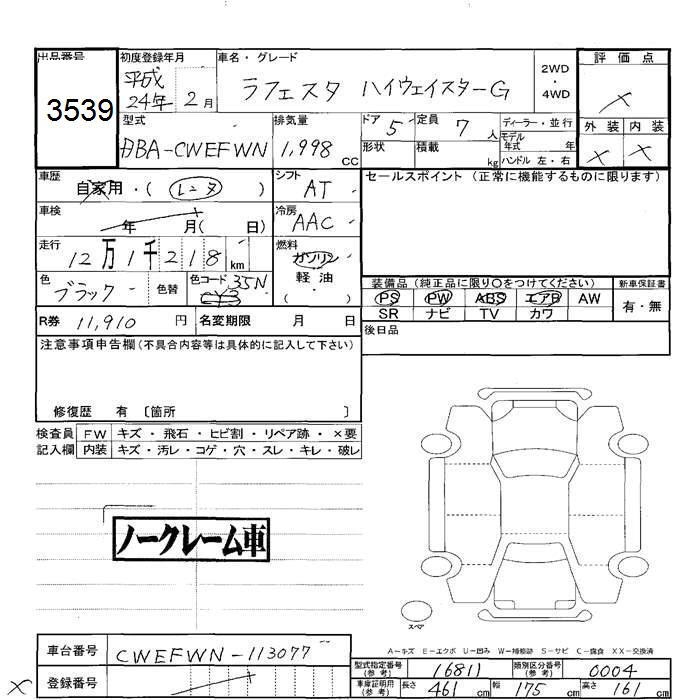 出品番号
3539
初度登録年月
平成
24年 2月
車名・グレード
ラフェスタ ハイウェイスターG
2WD
・
4WD
評価点
×
外装 内装
× ×
型式
DBA-CWEFWN
排気量
1,998 CC
ドア 5
定員 7 人
形状
積載 kg
ディーラー・並行
モデル
年式 年
ハンドル 左・右
車歴
自家用・(レンタ)
シフト
AT
セールスポイント (正常に機能するものに限ります)
車検
年 月( 日)
冷房
AAC
走行
12万1千218 km
燃料
ガソリン
軽油
( )
色
ブラック
色替
色コード 35N
装備品 (純正品に限り○をつけてください)
新車保証書
PS PW ABS エアB AW
有・無
SR ナビ TV カワ
R券 11,910 円
名変期限 月 日
後日品
注意事項申告欄(不具合内容等は具体的に記入して下さい)
修復歴 有 〔箇所 〕
検査員 FW キズ・飛石・ヒビ割・リペア跡・×要
記入欄 内装 キズ・汚レ・コゲ・穴・スレ・キレ・破レ
ノークレーム車
スペア
A-キズ E-エクボ U-凹み W-補修跡 S-サビ C-腐食 XX-交換済
車台番号 CWEFWN-113077
型式指定番号
(参考)
16811
類別区分番号
(参考)
0004
× 登録番号
車庫証明用
(参考)
長さ 461 cm 幅 175 cm 高さ 161 cm